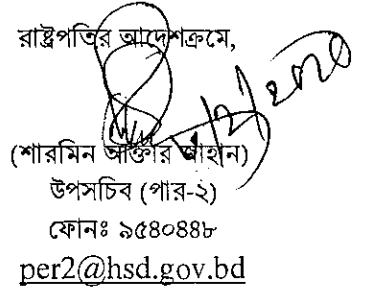 রাষ্ট্রপতির আদেশক্রমে,
(শারমিন আক্তার জাহান)
উপসচিব (পার-২)
ফোনঃ ৯৫৪০৪৪৮
per2@hsd.gov.bd